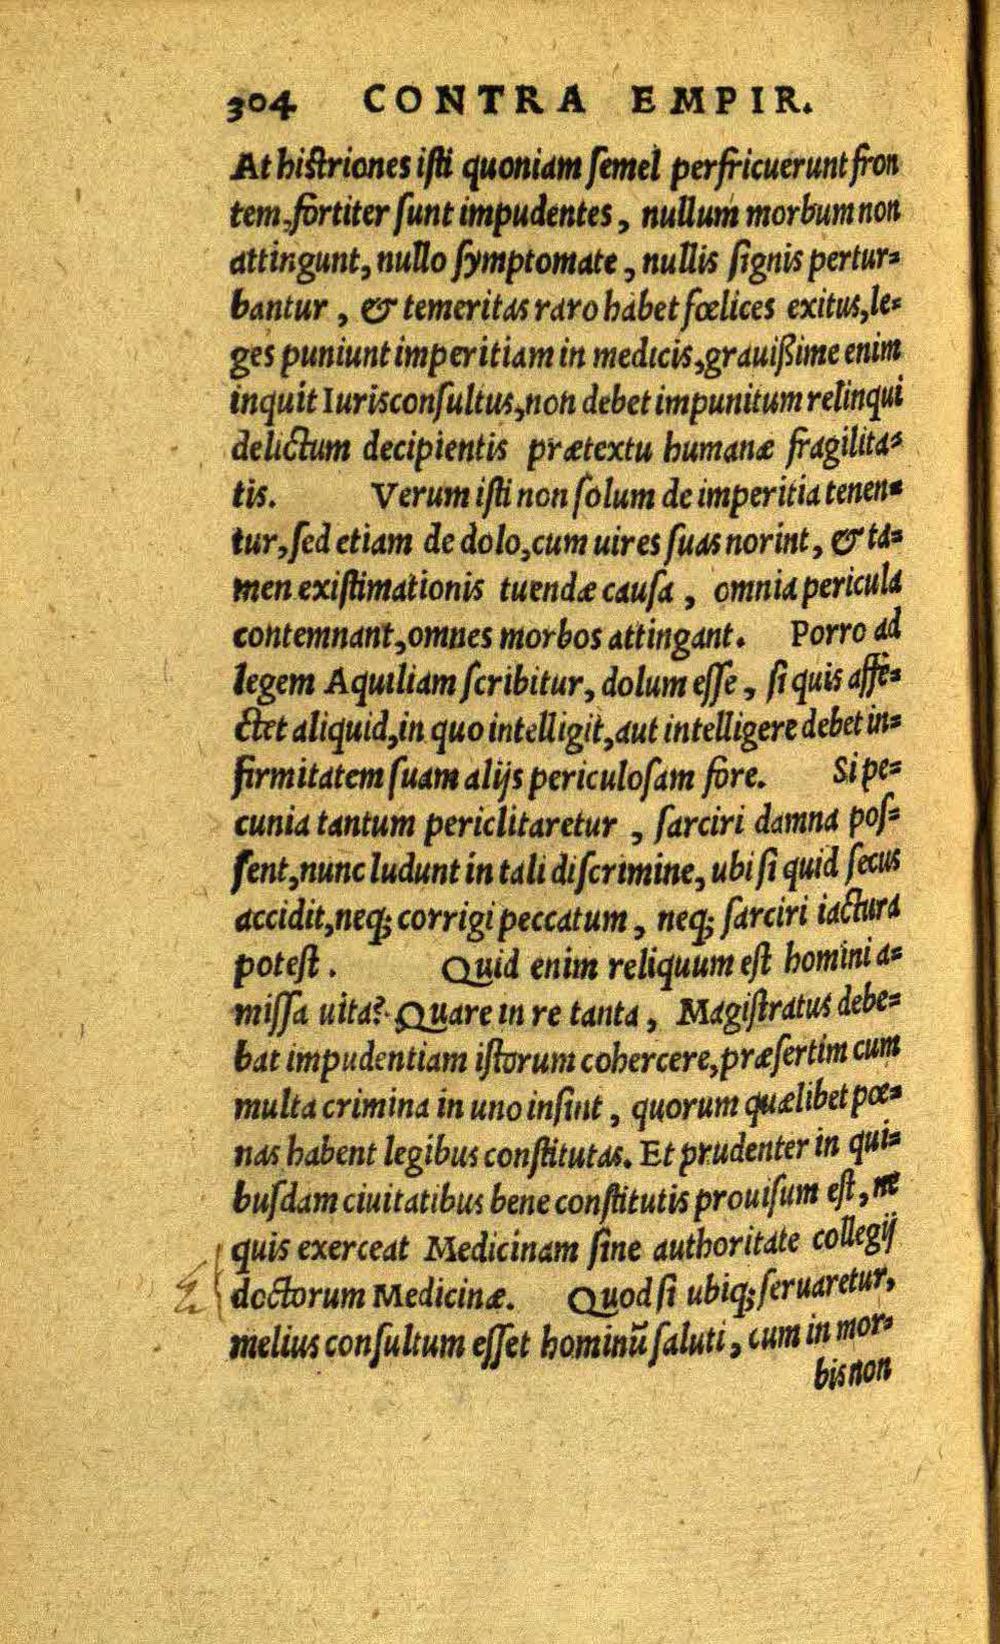 304 CONTRA EMPIR.
At histriones isti quoniam semel perfricuerunt fron
tem, fortiter sunt impudentes, nullum morbum non
attingunt, nullo symptomate, nullis signis pertur=
bantur, & temeritas raro habet fœlices exitus, le=
ges puniunt imperitiam in medicis, grauißime enim
inquit Iurisconsultus, non debet impunitum relinqui
delictum decipientis prætextu humanæ fragilita=
tis. Verum isti non solum de imperitia tenen=
tur, sed etiam de dolo, cum uires suas norint, & ta=
men existimationis tuendæ causa, omnia pericula
contemnant, omnes morbos attingant. Porro ad
legem Aquiliam scribitur, dolum esse, si quis affe=
ctet aliquid, in quo intelligit, aut intelligere debet in=
firmitatem suam alijs periculosam fore. Si pe=
cunia tantum periclitaretur, sarciri damna pos=
sent, nunc ludunt in tali discrimine, ubi si quid secus
accidit, neq; corrigi peccatum, neq; sarciri iactura
potest. Quid enim reliquum est homini a=
missa uita? Quare in re tanta, Magistratus debe=
bat impudentiam istorum cohercere, præsertim cum
multa crimina in uno insint, quorum quælibet pœ=
nas habent legibus constitutas. Et prudenter in qui=
busdam ciuitatibus bene constitutis prouisum est, ne
quis exerceat Medicinam sine authoritate collegij
doctorum Medicinæ. Quod si ubiq; seruaretur,
melius consultum esset hominū saluti, cum in mor=
bis non